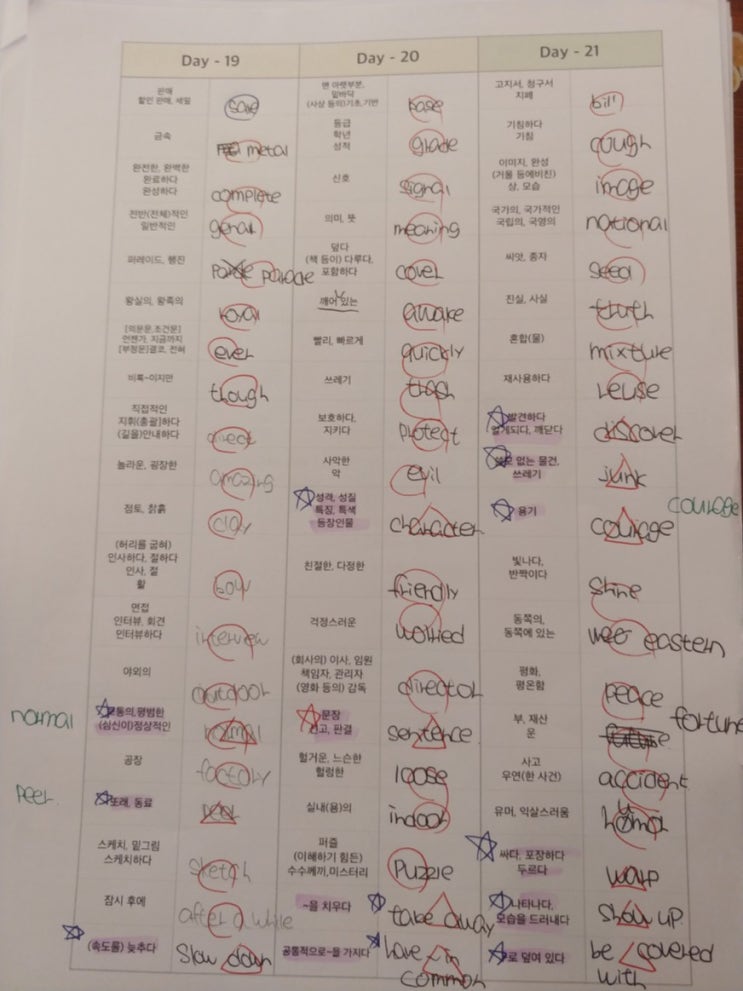 Day - 19
Day - 20
Day - 21
판매
할인 판매, 세일
sale
맨 아랫부분,
밑바닥
(사상 등의)기초, 기반
base
고지서, 청구서
지폐
bill
금속
metal
등급
학년
성적
grade
기침하다
기침
cough
완전한, 완벽한
완료하다
완성하다
complete
신호
signal
이미지, 완성
(거울 등에비친)
상, 모습
image
전반(전체)적인
일반적인
genaral
의미, 뜻
meaning
국가의, 국가적인
국립의, 국영의
national
퍼레이드, 행진
parade
덮다
(책 등이) 다루다,
포함하다
cover
씨앗, 종자
seed
왕실의, 왕족의
royal
깨어 있는
awake
진실, 사실
truth
[의문문,조건문]
언젠가, 지금까지
[부정문]결코, 전혀
ever
빨리, 빠르게
quickly
혼합(물)
mixture
비록~이지만
though
쓰레기
trash
재사용하다
reuse
직접적인
지휘(총괄)하다
(길을)안내하다
direct
보호하다,
지키다
protect
발견하다
알게되다, 깨닫다
discover
놀라운, 굉장한
amazing
사악한
악
evil
없는 물건,
쓰레기
junk
점토, 찰흙
clay
성격, 성질
특징, 특색
등장인물
character
용기
courage
courage
(허리를 굽혀)
인사하다, 절하다
인사, 절
활
bow
친절한, 다정한
friendly
빛나다,
반짝이다
shine
면접
인터뷰, 회견
인터뷰하다
interview
걱정스러운
worried
동쪽의,
동쪽에 있는
eastern
야외의
outdoor
(회사의) 이사, 임원
책임자, 관리자
(영화 등의) 감독
director
평화,
평온함
peace
normal
보통의,평범한
(심신이)정상적인
normal
문장
선고, 판결
sentence
부, 재산
운
fortune
공장
factory
헐거운, 느슨한
헐렁한
loose
사고
우연(한 사건)
accident
peer.
또래, 동료
실내(용)의
indoor
유머, 익살스러움
스케치, 밑그림
스케치하다
sketch
퍼즐
(이해하기 힘든)
수수께끼,미스터리
puzzle
싸다, 포장하다
두르다
warp
잠시 후에
after a while
~을 치우다
take away
나타나다,
모습을 드러내다
show up
(속도를) 늦추다
slow down
공통적으로~을 가지다
have in
common
로 덮여 있다
be covered
with